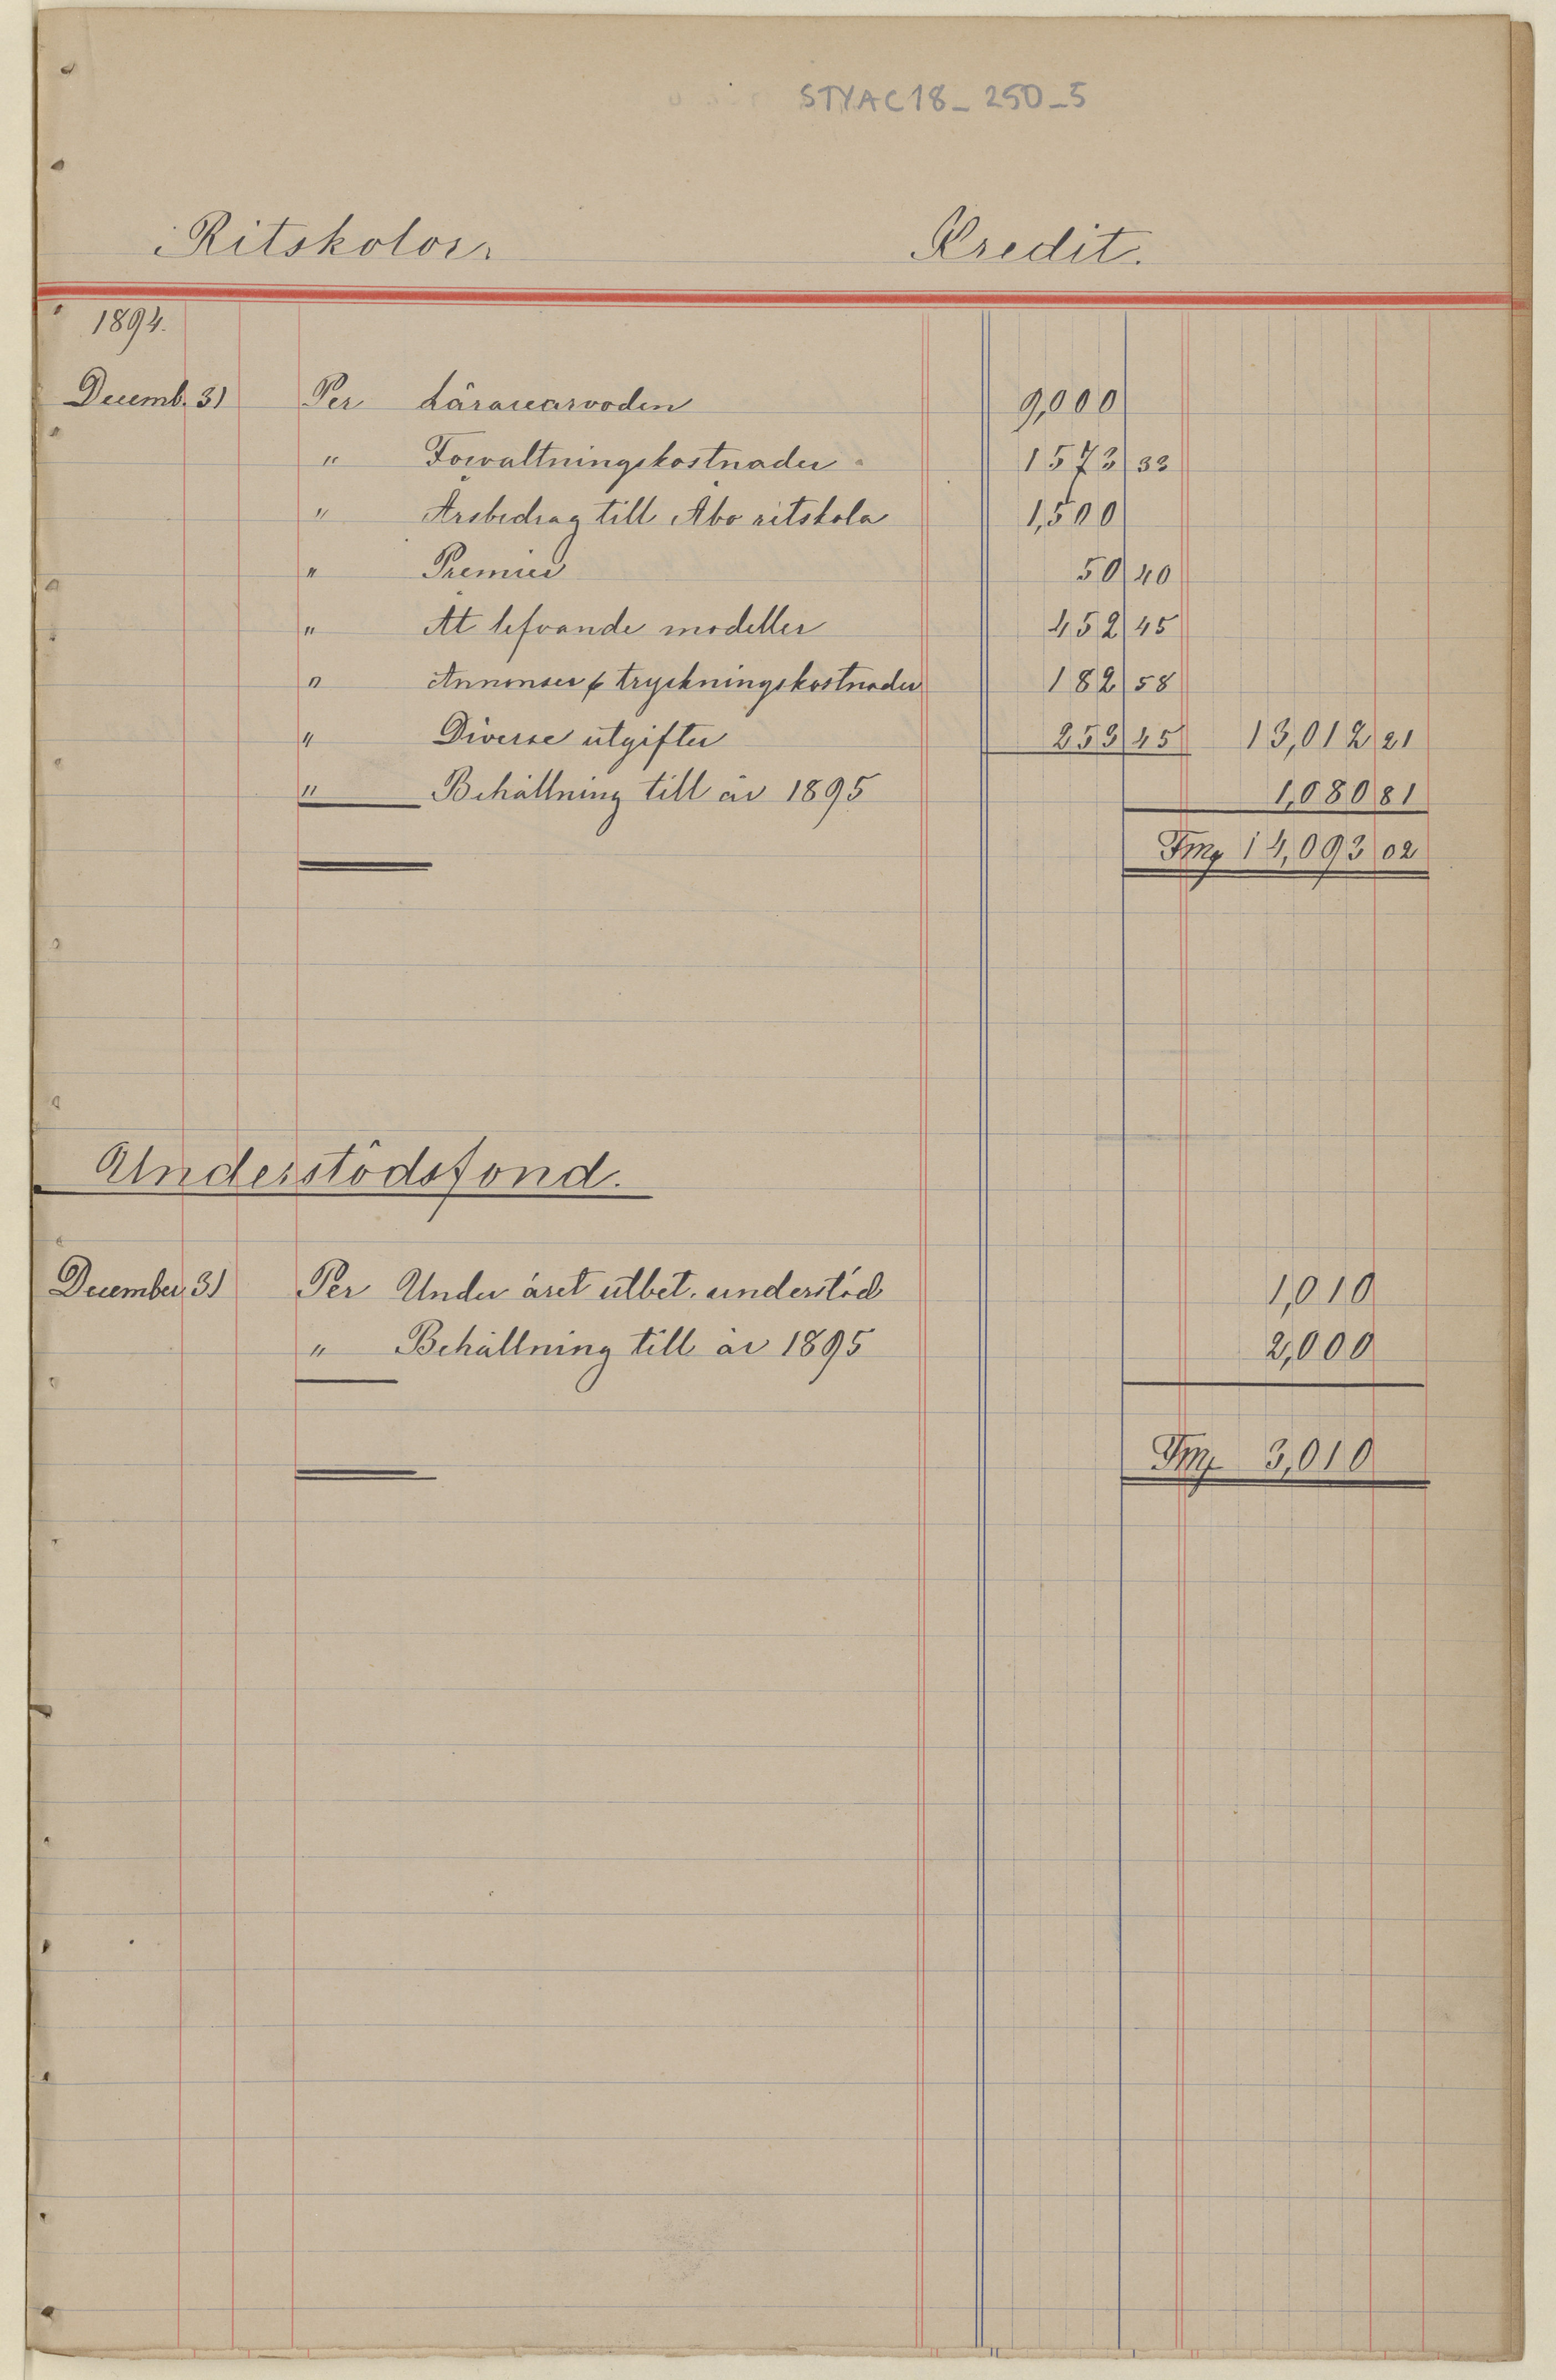 STYAC18_250_5
Ritskolor.
Kredit.
1894.
Decemb. 31 Per Lärarearvoden 9,000
" Förvaltningskostnader 1573 33
" Årsbidrag till Åbo ritskola 1,500
" Premier 50 40
" At lefvande modeller 452 45
" Annonser & tryckningskostnader 182 58
" Diverse utgifter 253 45 13,012 21
" Behållning till år 1895 1,080 81
Fmg 14,093 02
Understödsfond.
December 31 Per Under året utbet. understöd 1,010
" Behållning till år 1895 2,000
Fmg 3,010